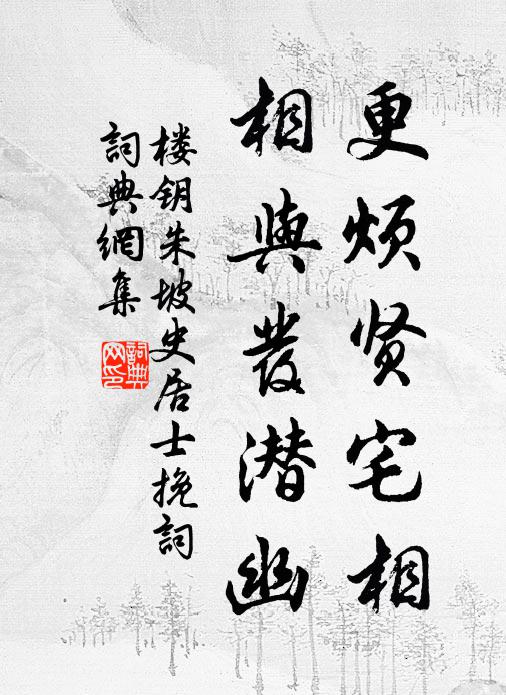 更烦贤宅相
相與發潜幽
楼钥朱坡史居士挽詞
詞典網集
詞典網印